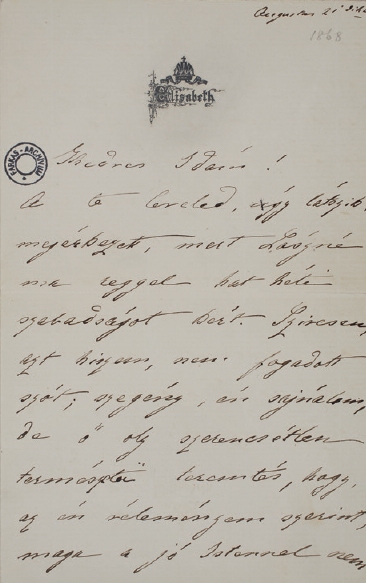 Augustus 21 dikén
1868
Elisabeth
FARKAS-ARCHIVUM
Kedves Idám!
A te leveled, úgy látszik
megérkezett, mert
ma reggel hat heti
szabadságot kért. Szivesen,
azt hiszem, nem fogadott
szót; szegény, én sajnálom,
de ő oly szerencsétlen
természetű teremtés, hogy,
az én véleményem szerint,
maga a jó Istennel nem